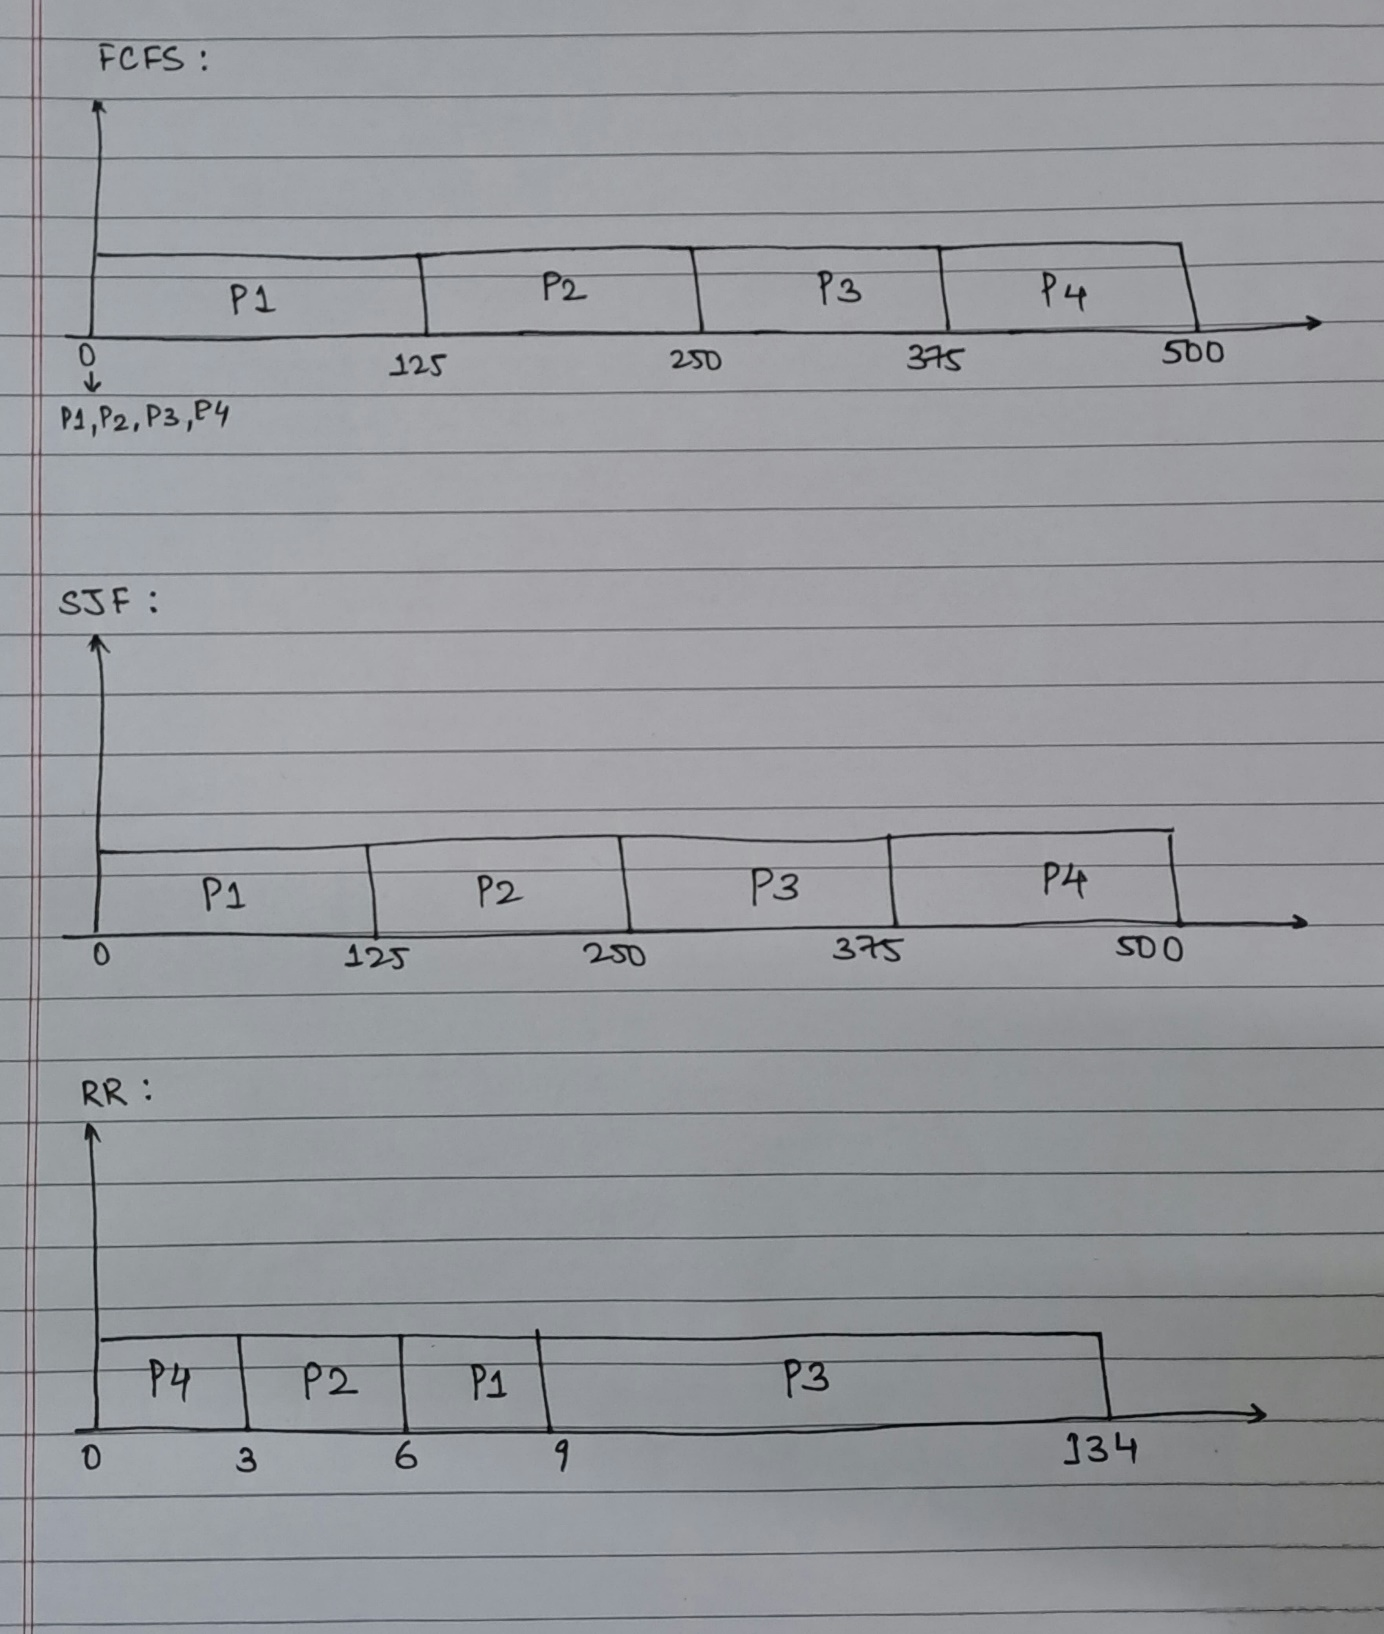 FCFS :
P1 P2 P3 P4
0 125 250 375 500
P1, P2, P3, P4
SJF :
P1 P2 P3 P4
0 125 250 375 500
RR :
P4 P2 P1 P3
0 3 6 9 134